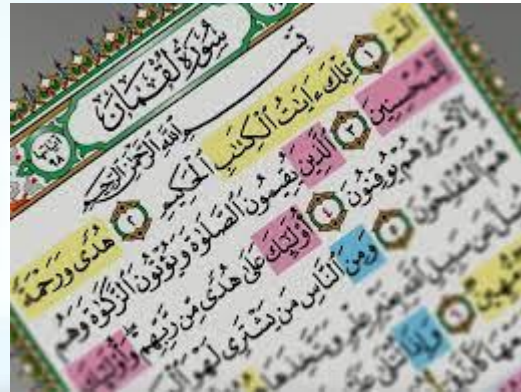 سُورَةُ لُقْمَانَ
بِسْمِ اللَّهِ الرَّحْمَٰنِ الرَّحِيمِ
الٓمٓ ١ تِلْكَ ءَايَٰتُ الْكِتَٰبِ الْحَكِيمِ ٢ هُدًى وَرَحْمَةً
لِّلْمُحْسِنِينَ ٣ الَّذِينَ يُقِيمُونَ الصَّلَوٰةَ وَيُؤْتُونَ الزَّكَوٰةَ وَهُم
بِالْآخِرَةِ هُمْ يُوقِنُونَ ٤ أُوْلَٰٓئِكَ عَلَىٰ هُدًى مِّن رَّبِّهِمْ وَأُوْلَٰٓئِكَ
هُمُ الْمُفْلِحُونَ ٥ وَمِنَ النَّاسِ مَن يَشْتَرِى لَهْوَ
عَن سَبِيلِ اللَّهِ بِغَيْرِ عِلْمٍ وَيَتَّخِذَهَا
مُّهِينٌ ٦ وَإِذَا تُتْلَىٰ